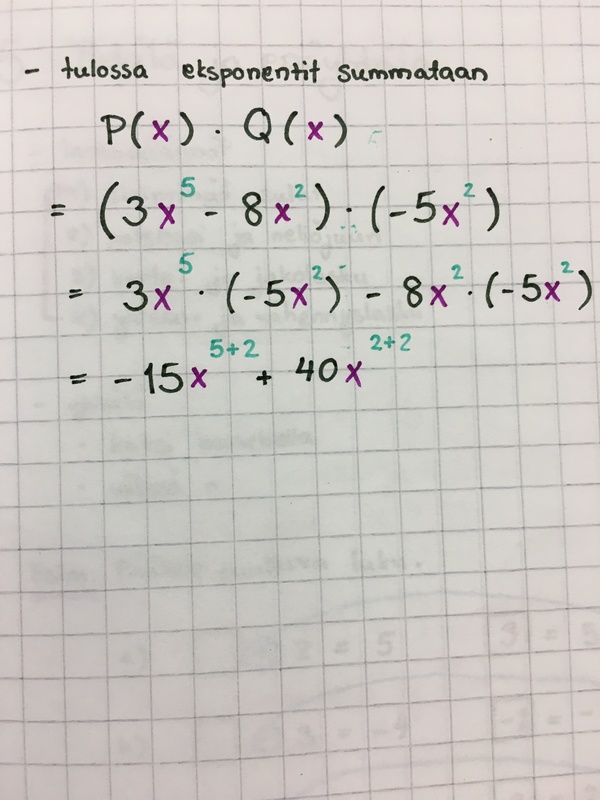 - tulossa eksponentit summataan
P(x) · Q(x)
= (3x⁵ - 8x²) · (-5x²)
= 3x⁵ · (-5x²) - 8x² · (-5x²)
= -15x⁵⁺² + 40x²⁺²